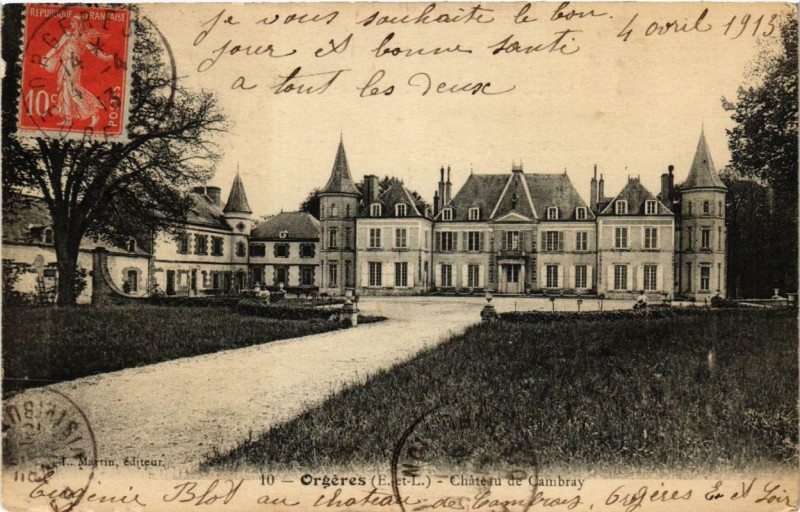 REPUBLIQUE FRANÇAISE
10c
POSTES
Je vous souhaite le bon
4 avril 1913
jour et bonne santé
a tout les deux
L. Martin, éditeur.
10 — Orgères (E.-et-L.) - Château de Cambray
Eugénie Blot au chateau de Cambray Orgères E et Loir